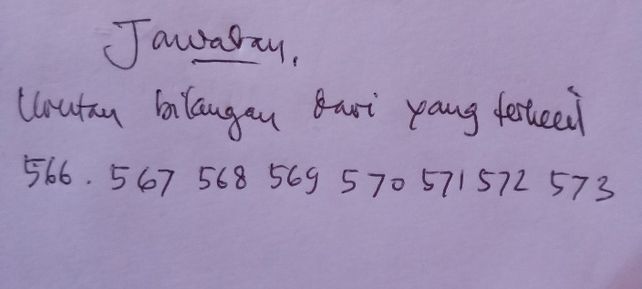 Jawaban,
Urutan bilangan dari yang terkecil
566. 567 568 569 570 571 572 573